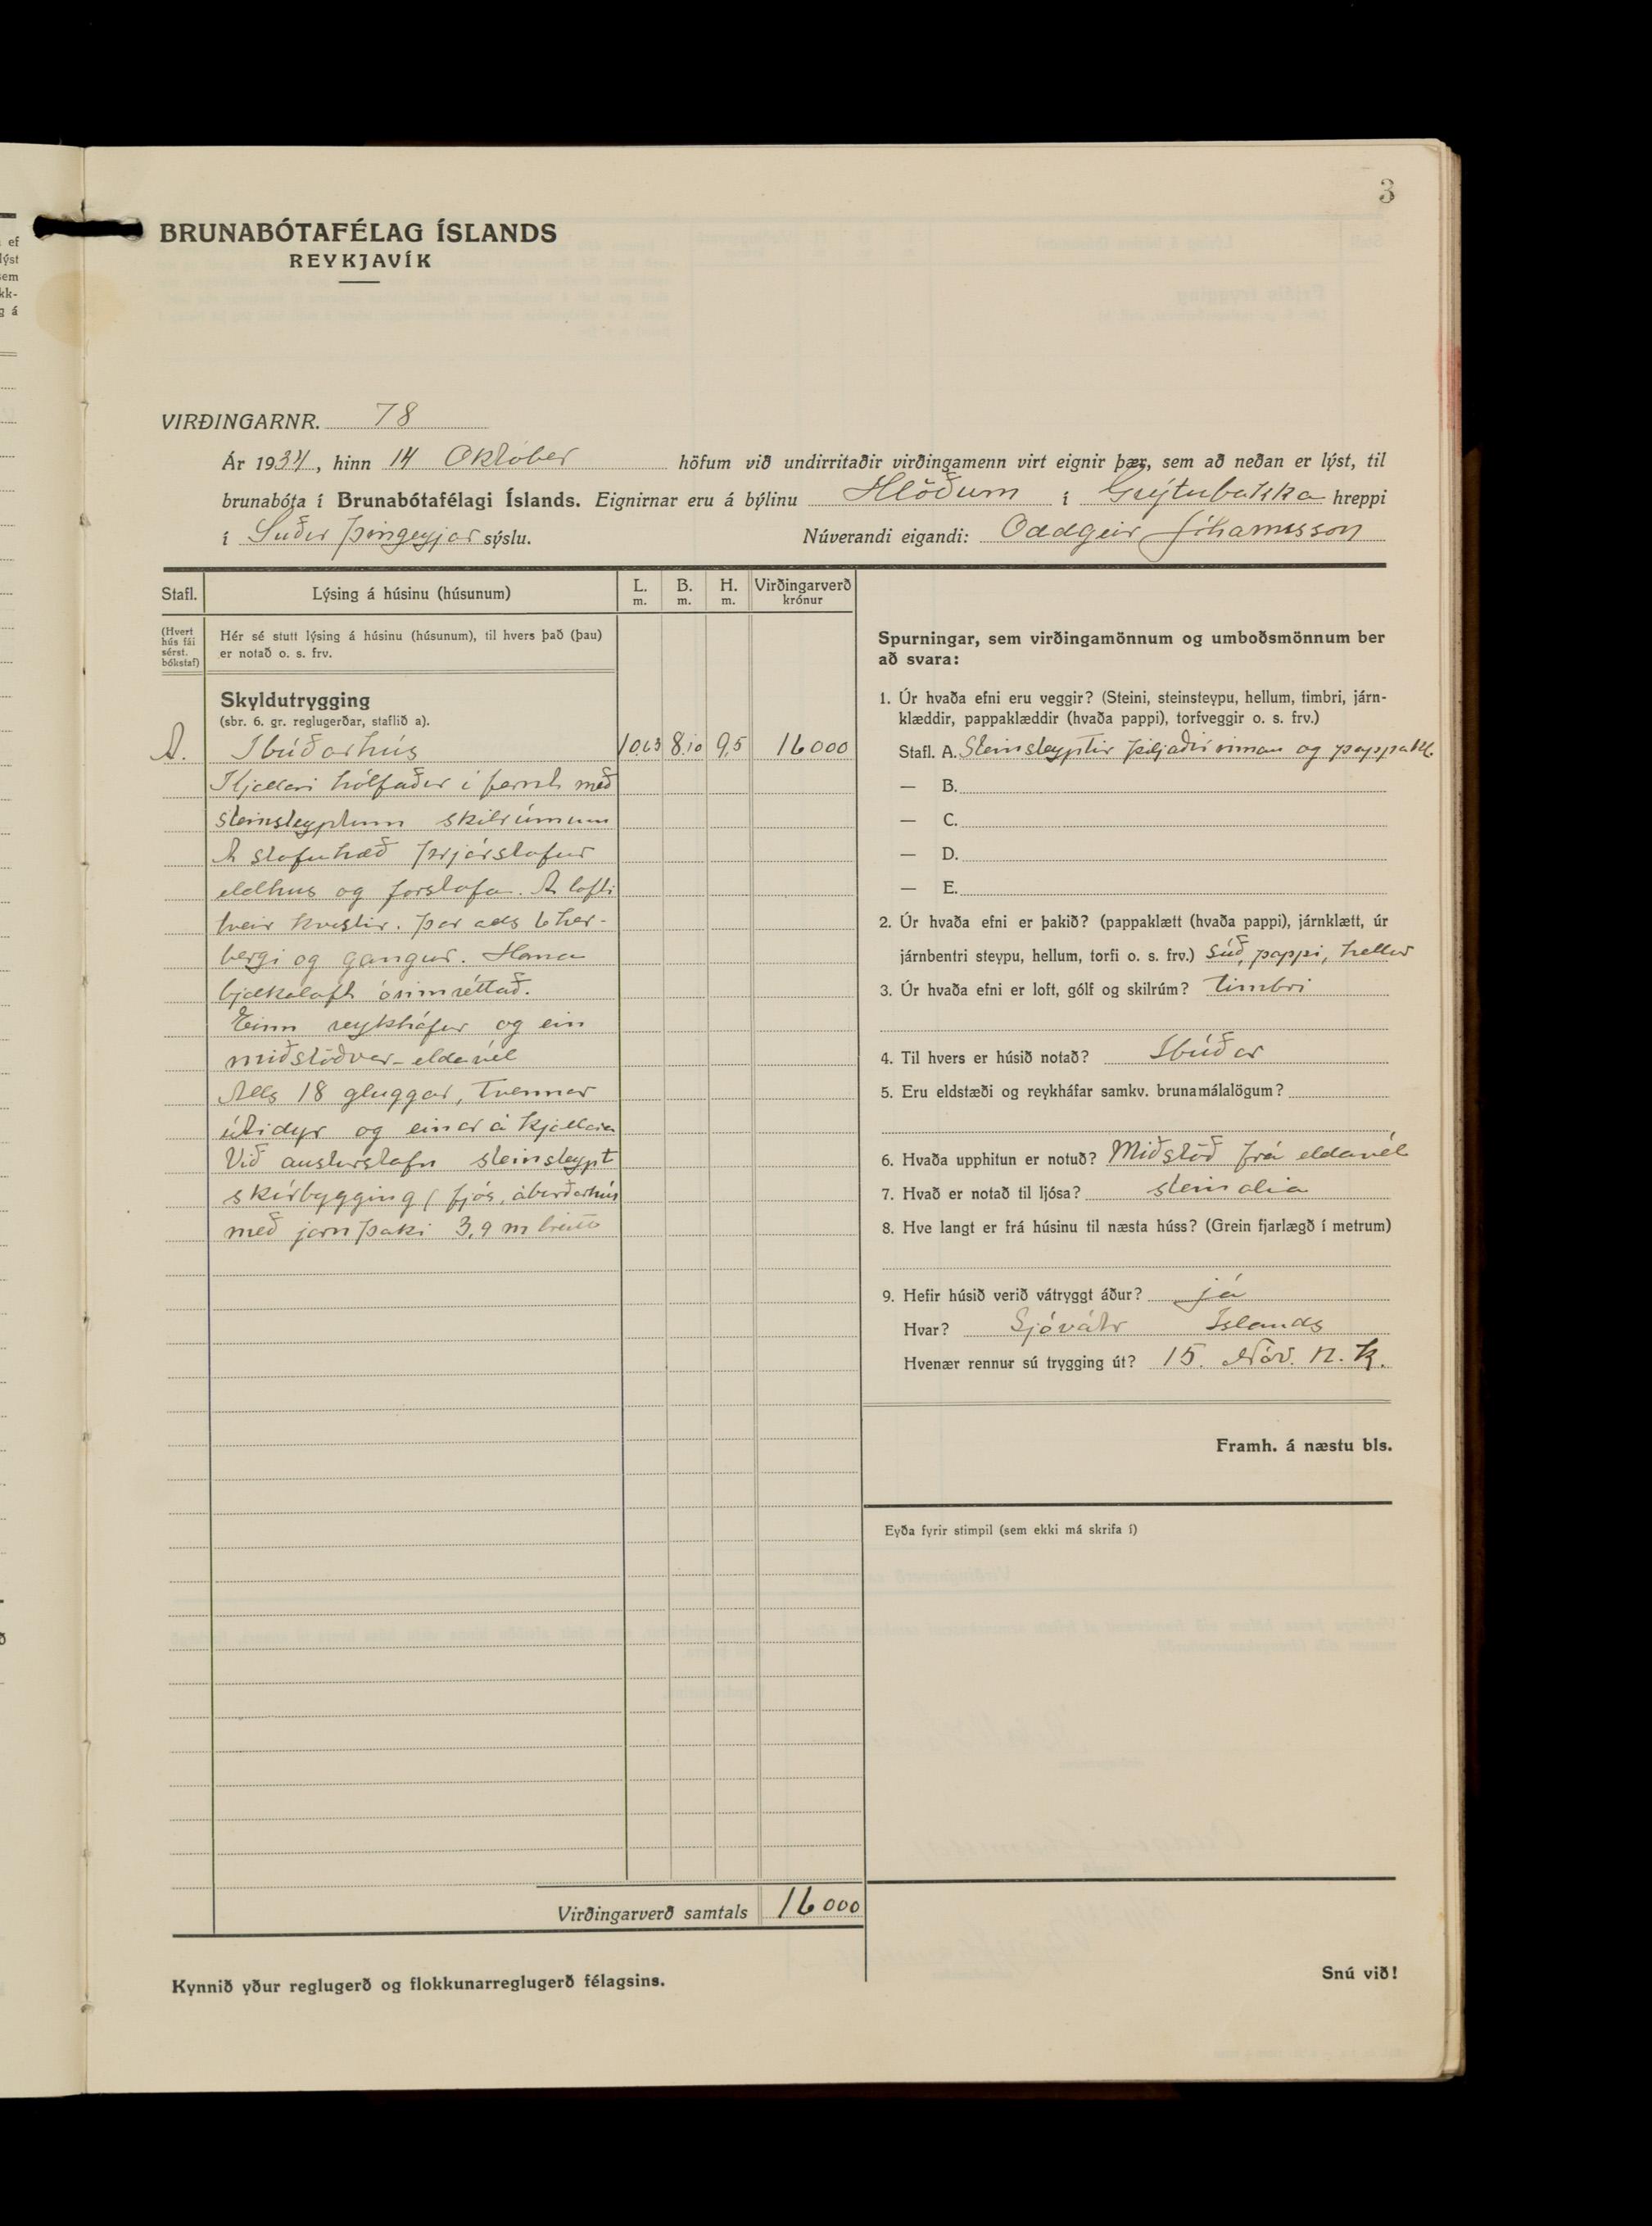 3
BRUNABÓTAFÉLAG ÍSLANDS
REYKJAVÍK
VIRÐINGARNR. 78
Ár 1934, hinn 14 Október höfum við undirritaðir virðingamenn virt eignir þær, sem að neðan er lýst, til
brunabóta í Brunabótafélagi Íslands. Eignirnar eru á býlinu Hlöðum í Grýtubakka hreppi
í Suður þingeyjar sýslu. Núverandi eigandi: Oddgeir Jóhannsson
Stafl. Lýsing á húsinu (húsunum) L. m. B. m. H. m. Virðingarverð krónur
(Hvert hús fái sérst. bókstaf)
Hér sé stutt lýsing á húsinu (húsunum), til hvers það (þau)
er notað o. s. frv.
Skyldutrygging
(sbr. 6. gr. reglugerðar, staflið a).
A. Ibúðarhús 10.63 8.10 9,5 16000
Kjallari hólfaður í fernt með
steinsteyptum skilrúmum
A stofuhæð þrjárstofur
eldhus og forstofa. A lofti
tveir kvistir. þar als 6 her-
bergi og gangur. Hana
bjalkaloft óinnréttað.
Einn reykháfur og ein
miðstöðvar-eldavél
Alls 18 gluggar, tvennar
útidyr og einar á kjallara
Við austurstafn steinsteypt
skúrbygging (fjós, áburðarhús
með jarnþaki 3,9 m breitt
Virðingarverð samtals 16000
Kynnið yður reglugerð og flokkunarreglugerð félagsins.
Spurningar, sem virðingamönnum og umboðsmönnum ber
að svara:
1. Úr hvaða efni eru veggir? (Steini, steinsteypu, hellum, timbri, járn-
klæddir, pappaklæddir (hvaða pappi), torfveggir o. s. frv.)
Stafl. A. Steinsteyptir þiljaðir innan og pappakl.
— B.
— C.
— D.
— E.
2. Úr hvaða efni er þakið? (pappaklætt (hvaða pappi), járnklætt, úr
járnbentri steypu, hellum, torfi o. s. frv.) Súð, pappi, hellur
3. Úr hvaða efni er loft, gólf og skilrúm? timbri
4. Til hvers er húsið notað? Ibúðar
5. Eru eldstæði og reykháfar samkv. brunamálalögum?
6. Hvaða upphitun er notuð? Miðstöð frá eldavél
7. Hvað er notað til ljósa? steinolia
8. Hve langt er frá húsinu til næsta húss? (Grein fjarlægð í metrum)
9. Hefir húsið verið vátryggt áður? já
Hvar? Sjóvátr Islands
Hvenær rennur sú trygging út? 15. Nóv. n. k.
Framh. á næstu bls.
Eyða fyrir stimpil (sem ekki má skrifa í)
Snú við!